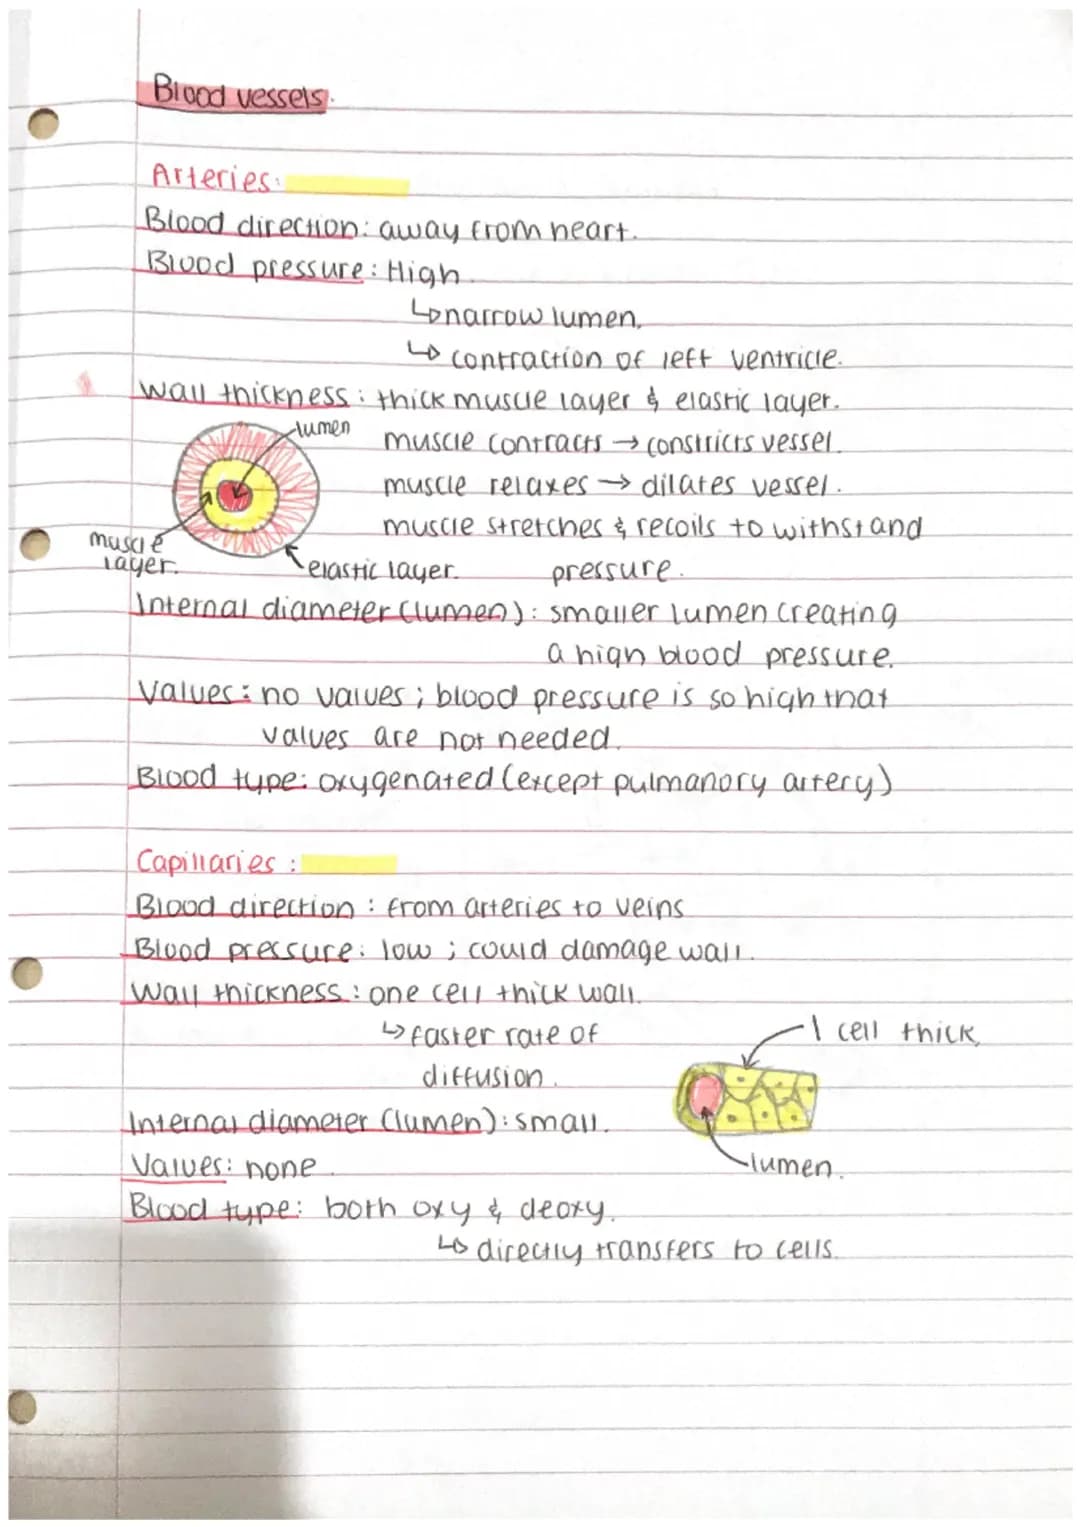 Blood vessels.
Arteries:
Blood direction: away from heart.
Blood pressure: High.
↳ narrow lumen.
↳ contraction of left ventricle.
Wall thickness: thick muscle layer & elastic layer.
lumen
muscle contracts → constricts vessel.
muscle relaxes → dilates vessel.
muscle stretches & recoils to withstand
muscle
layer.
elastic layer.
pressure.
Internal diameter (lumen): smaller lumen creating
a high blood pressure.
Values: no values; blood pressure is so high that
values are not needed.
Blood type: oxygenated (except pulmanory artery)
Capillaries:
Blood direction: from arteries to veins
Blood pressure: low; could damage wall.
Wall thickness: one cell thick wall.
↳ faster rate of
diffusion.
1 cell thick.
Internal diameter (lumen): small.
lumen.
Values: none.
Blood type: both oxy & deoxy.
↳ directly transfers to cells.